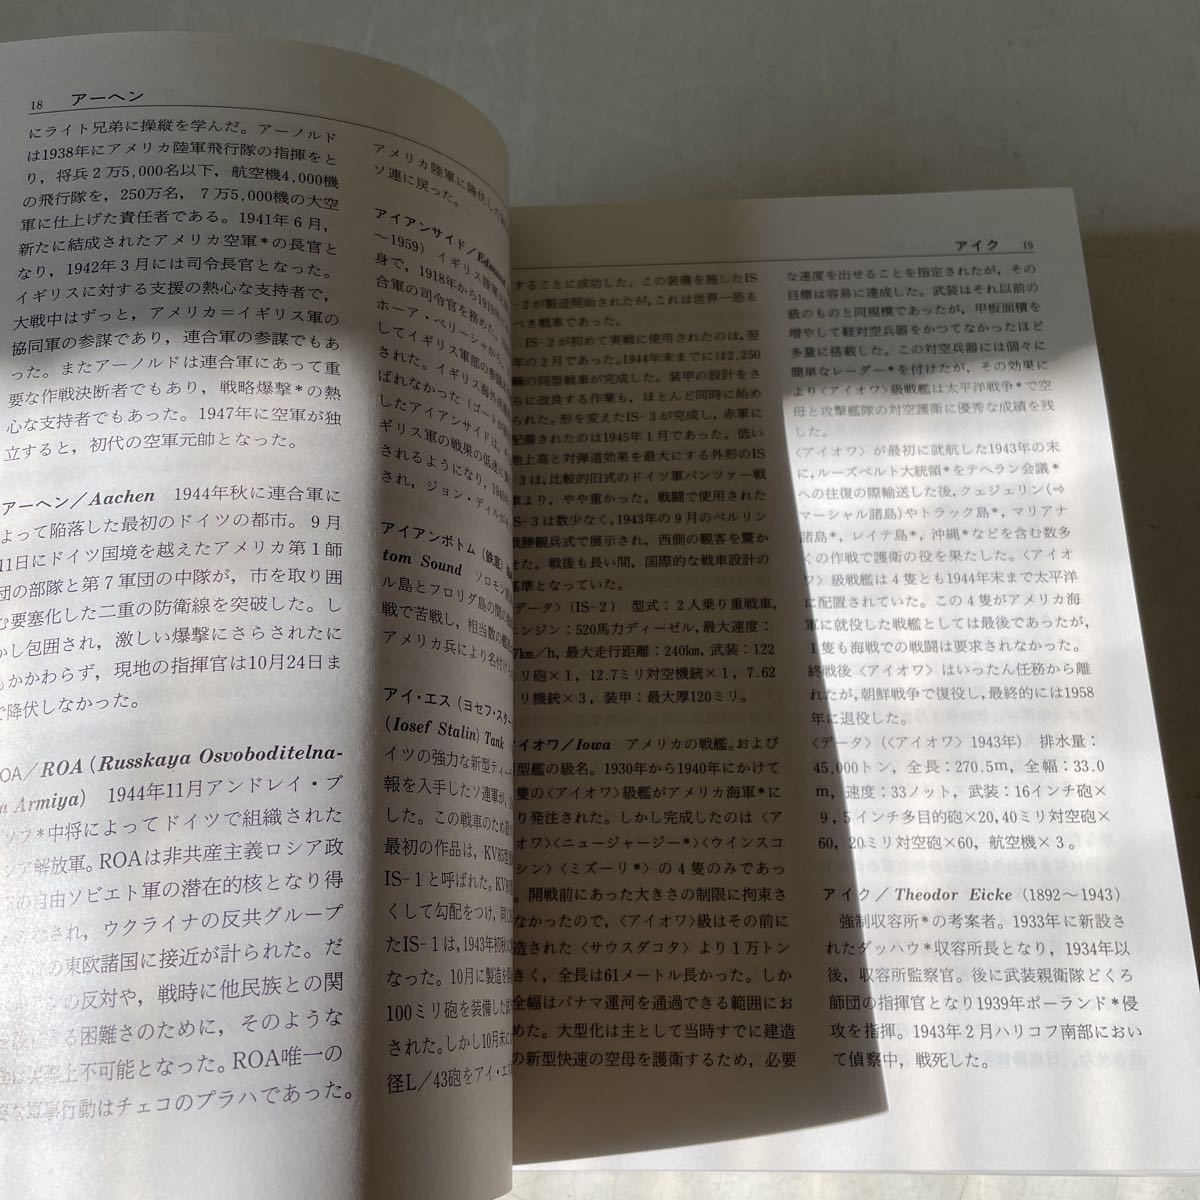 18 アーヘン
にライト兄弟に操縦を学んだ。アーノルド
は1938年にアメリカ陸軍飛行隊の指揮をと
り，将兵2万5,000名以下，航空機4,000機
の飛行隊を，250万名，7万5,000機の大空
軍に仕上げた責任者である。1941年6月，
新たに結成されたアメリカ空軍*の長官と
なり，1942年3月には司令長官となった。
イギリスに対する支援の熱心な支持者で，
大戦中はずっと，アメリカ＝イギリス軍の
協同軍の参謀であり，連合軍の参謀でもあ
った。またアーノルドは連合軍にあって重
要な作戦決断者でもあり，戦略爆撃*の熱
心な支持者でもあった。1947年に空軍が独
立すると，初代の空軍元帥となった。
アーヘン／Aachen 1944年秋に連合軍に
よって陥落した最初のドイツの都市。9月
11日にドイツ国境を越えたアメリカ第1師
団の部隊と第7軍団の中隊が，市を取り囲
む要塞化した二重の防衛線を突破した。し
かし包囲され，激しい爆撃にさらされたに
もかかわらず，現地の指揮官は10月24日ま
で降伏しなかった。
ROA／ROA (Russkaya Osvoboditelna-
ya Armiya) 1944年11月アンドレイ・ブ
中将によってドイツで組織された
シア解放軍。ROAは非共産主義ロシア政
の自由ソビエト軍の潜在的核となり得
なされ，ウクライナの反共グループ
の東欧諸国に接近が計られた。だ
の反対や，戦時に他民族との関
る困難さのために，そのような
上不可能となった。ROA唯一の
な軍事行動はチェコのプラハであった。
アメリカ陸軍に降伏した
ソ連に戻った。
アイアンサイド／Edmund
〜1959） イギリス陸軍
身で，1918年から1919年
合軍の司令官を務めた。
ホーア・ベリーシャから
してイギリス軍部の参謀
された。イギリス海外派遣
ばれなかった（ゴートが
したアイアンサイドは，
ギリス軍の戦果の低迷に
されるようになり，1940年
され，ジョン・ディルが
アイアンボトム（鉄底）
tom Sound ソロモン
ル島とフロリダ島の間の
戦で苦戦し，相当数の
アメリカ兵により名付け
アイ・エス（ヨセフ・スター
(Iosef Stalin) Tank
イツの強力な新型ティー
報を入手したソ連軍が，
した。この戦車のため
最初の作品は，KV85型
IS-1と呼ばれた。KV85
くして勾配をつけ，同
たIS-1は，1943年初秋
なった。10月に製造を
100ミリ砲を装備した
された。しかし10月末
径L／43砲をアイ・エス
アイク 19
することに成功した。この装備を施したIS
-2が製造開始されたが，これは世界一恐る
べき戦車であった。
IS-2が初めて実戦に使用されたのは，翌
年の2月であった。1944年末までには2,250
輛の同型戦車が完成した。装甲の設計をさ
らに改良する作業も，ほとんど同時に始め
られた。形を変えたIS-3が完成し，赤軍に
配備されたのは1945年1月であった。低い
地上高と対弾道効果を最大にする外形のIS
-3は，比較的旧式のドイツ軍パンツァー戦
車より，やや重かった。戦闘で使用された
IS-3は数少なく，1943年の9月のベルリン
戦勝観兵式で展示され，西側の観客を驚か
せた。戦後も長い間，国際的な戦車設計の
基準となっていた。
〈データ〉（IS-2） 型式：2人乗り重戦車，
エンジン：520馬力ディーゼル，最大速度：
37km/h，最大走行距離：240km，武装：122
ミリ砲×1，12.7ミリ対空機銃×1，7.62
ミリ機銃×3，装甲：最大厚120ミリ。
アイオワ／Iowa アメリカの戦艦。および
同型艦の級名。1930年から1940年にかけて
隻の〈アイオワ〉級艦がアメリカ海軍*に
より発注された。しかし完成したのは〈ア
イオワ〉〈ニュージャージー*〉〈ウインスコ
ンシン〉〈ミズーリ*〉の4隻のみであっ
開戦前にあった大きさの制限に拘束さ
なかったので，〈アイオワ〉級はその前に
建造された〈サウスダコタ〉より1万トン
きく，全長は61メートル長かった。しか
全幅はパナマ運河を通過できる範囲にお
めた。大型化は主として当時すでに建造
の新型快速の空母を護衛するため，必要
な速度を出せることを指定されたが，その
目標は容易に達成した。武装はそれ以前の
級のものと同規模であったが，甲板面積を
増やして軽対空兵器をかつてなかったほど
多量に搭載した。この対空兵器には個々に
簡単なレーダー*を付けたが，その効果に
より〈アイオワ〉級戦艦は太平洋戦争*で空
母と攻撃艦隊の対空護衛に優秀な成績を残
した。
〈アイオワ〉が最初に就航した1943年の末
に，ルーズベルト大統領*をテヘラン会議*
への往復の際輸送した後，クェジェリン(⇨
マーシャル諸島)やトラック島*，マリアナ
諸島*，レイテ島*，沖縄*などを含む数多
くの作戦で護衛の役を果たした。〈アイオ
ワ〉級戦艦は4隻とも1944年末まで太平洋
に配置されていた。この4隻がアメリカ海
軍に就役した戦艦としては最後であったが，
1隻も海戦での戦闘は要求されなかった。
終戦後〈アイオワ〉はいったん任務から離
れたが，朝鮮戦争で復役し，最終的には1958
年に退役した。
〈データ〉（〈アイオワ〉1943年） 排水量：
45,000トン，全長：270.5m，全幅：33.0
m，速度：33ノット，武装：16インチ砲×
9，5インチ多目的砲×20，40ミリ対空砲×
60，20ミリ対空砲×60，航空機×3。
アイク／Theodor Eicke（1892〜1943）
強制収容所*の考案者。1933年に新設さ
れたダッハウ*収容所長となり，1934年以
後，収容所監察官。後に武装親衛隊どくろ
師団の指揮官となり1939年ポーランド*侵
攻を指揮。1943年2月ハリコフ南部におい
て偵察中，戦死した。